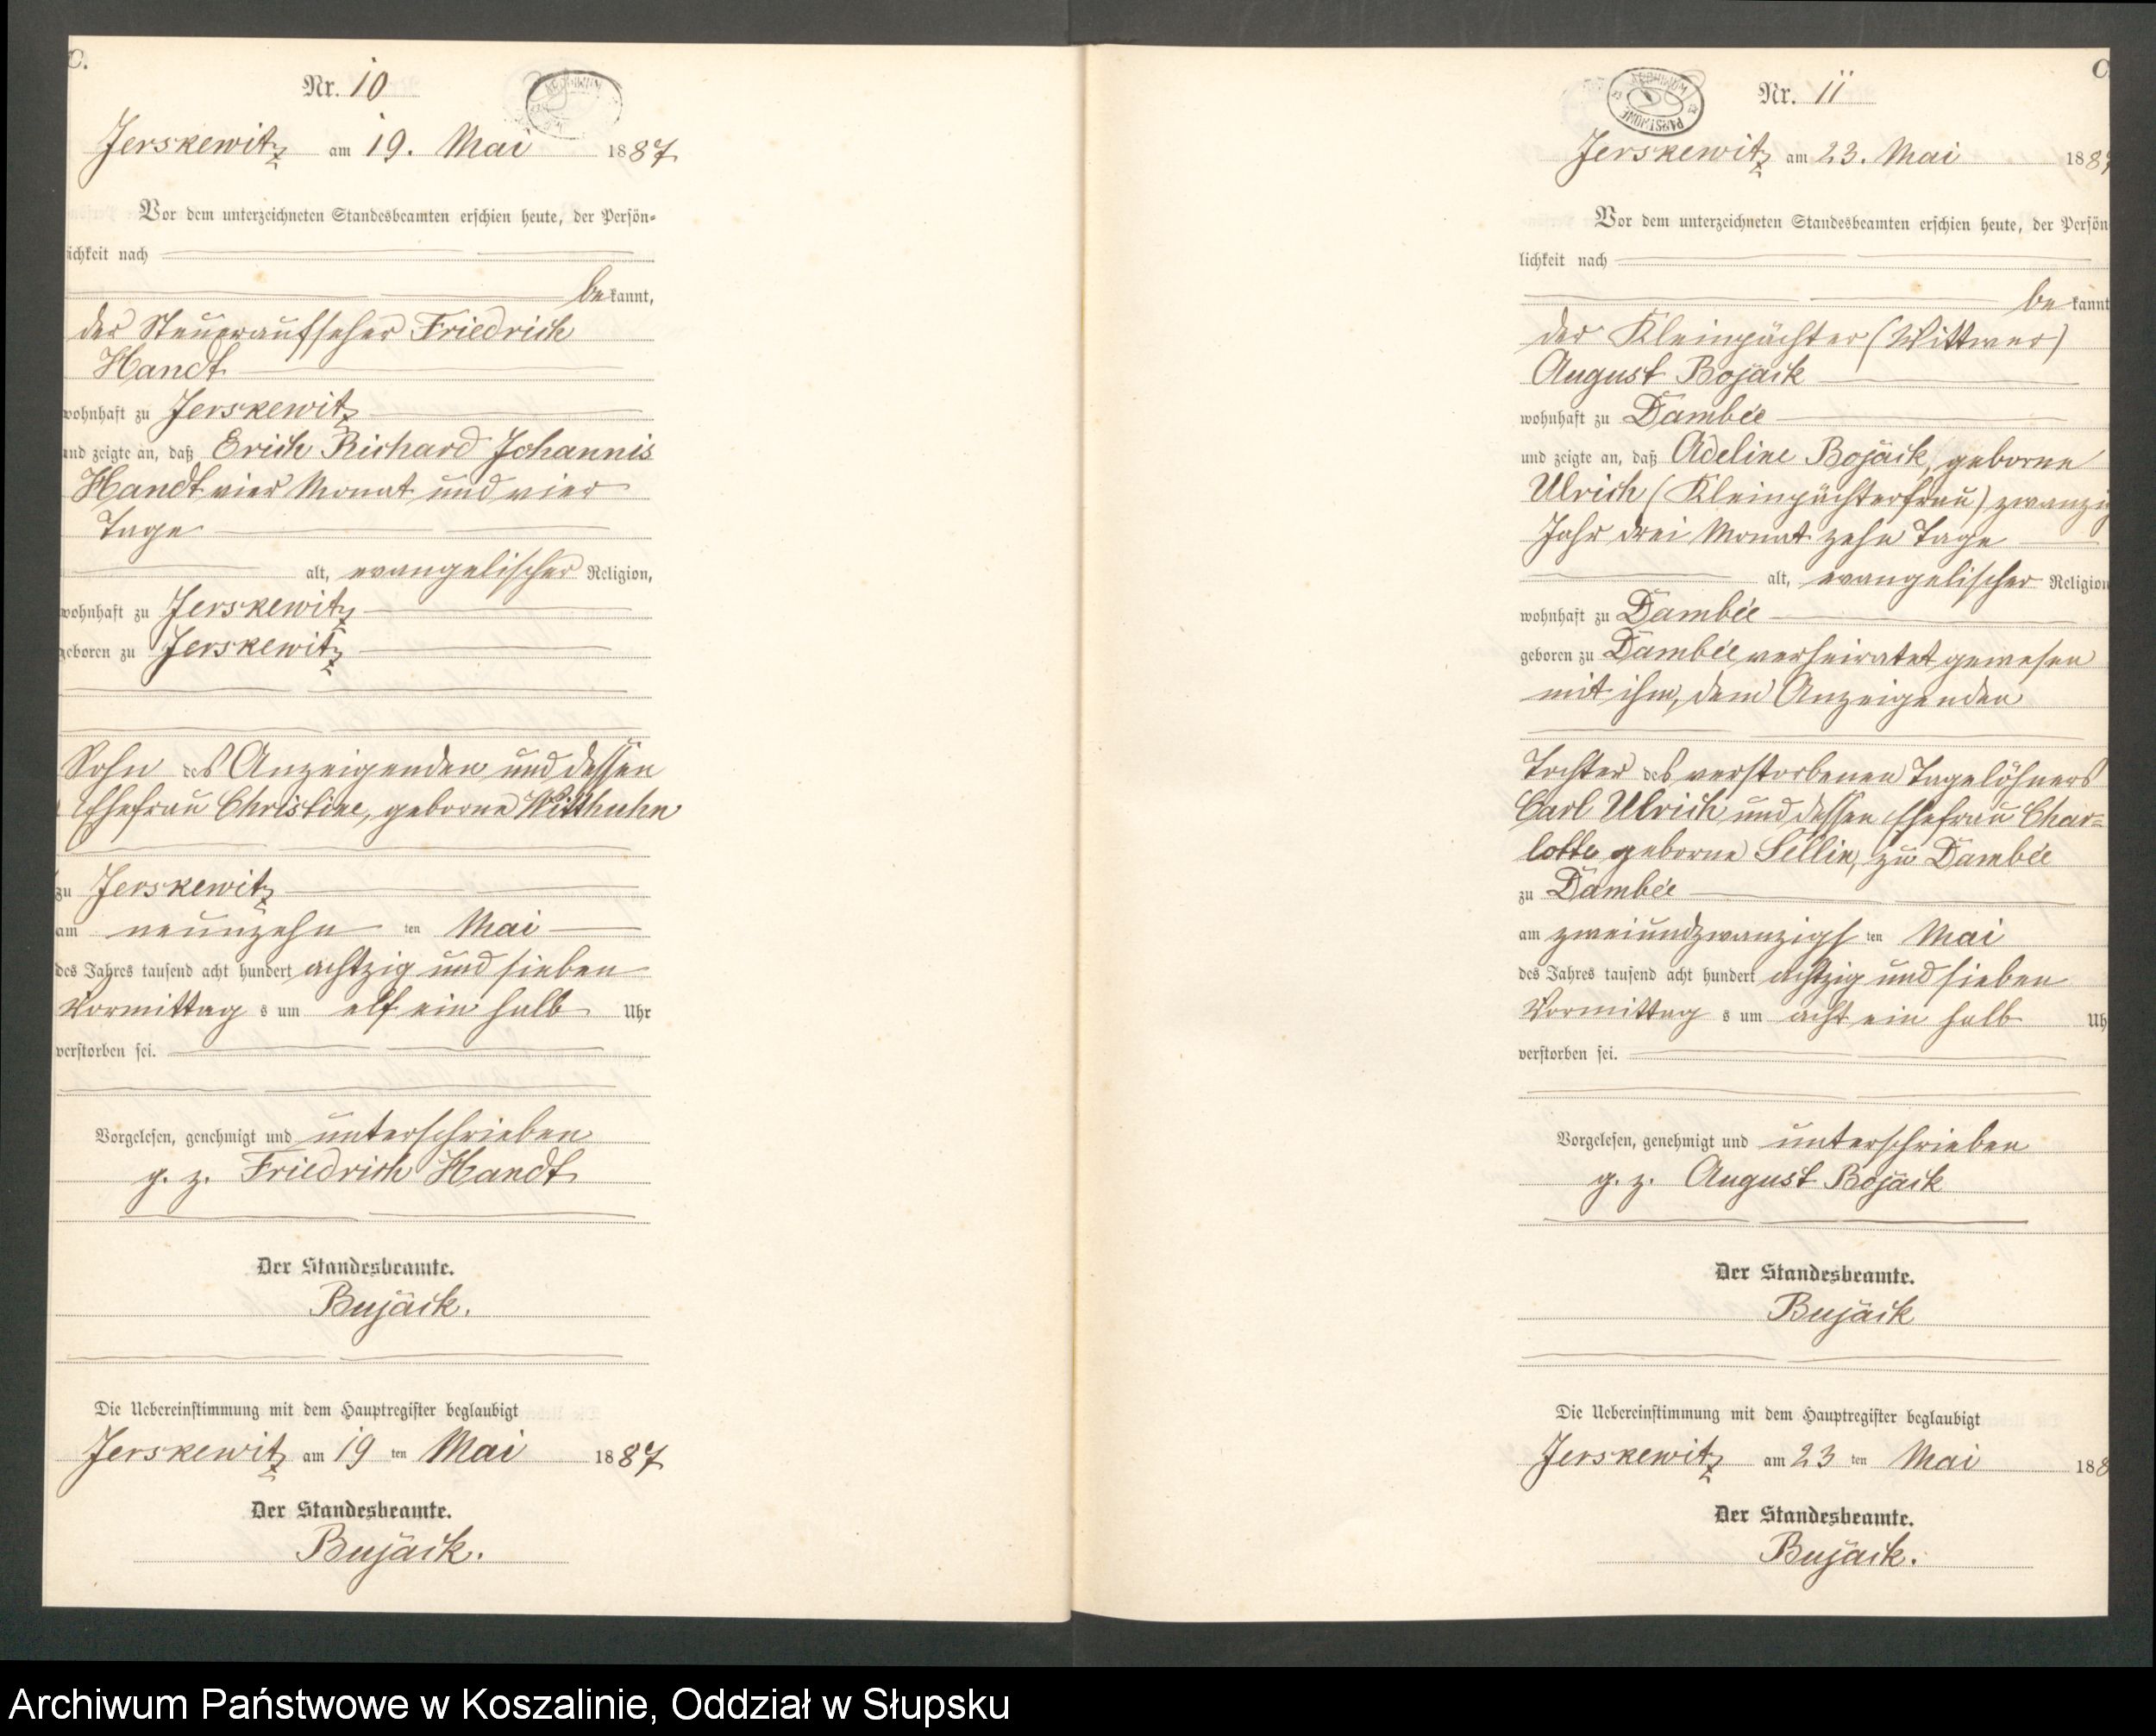 C.
Nr. 10
Jerskewitz am 19. Mai 1887
Vor dem unterzeichneten Standesbeamten erschien heute, der Persön-
lichkeit nach
bekannt,
der Steueraufseher Friedrich
Handt
wohnhaft zu Jerskewitz
und zeigte an, daß Erich Richard Johannis
Handt vier Monat und vier
Tage
alt, evangelischer Religion,
wohnhaft zu Jerskewitz
geboren zu Jerskewitz
Sohn des Anzeigenden und dessen
Ehefrau Christine, geborne Witthuhn
zu Jerskewitz
am neunzehn ten Mai
des Jahres tausend acht hundert achtzig und sieben
Vormittag s um elf ein halb Uhr
verstorben sei.
Vorgelesen, genehmigt und unterschrieben
g. z. Friedrich Handt
Der Standesbeamte.
Bujack.
Die Uebereinstimmung mit dem Hauptregister beglaubigt
Jerskewitz am 19 ten Mai 1887
Der Standesbeamte.
Bujack.
C
ARCHIWUM PAŃSTWOWE
Nr. 11
Jerskewitz am 23. Mai 188
Vor dem unterzeichneten Standesbeamten erschien heute, der Persön
lichkeit nach
bekannt
der Kleinpächter (Wittwer)
August Bojack
wohnhaft zu Dambée
und zeigte an, daß Adeline Bojack, geborne
Ulrich (Kleinpächterfrau) zwanzig
Jahr drei Monat zehn Tage
alt, evangelischer Religion
wohnhaft zu Dambée
geboren zu Dambée, verheiratet gewesen
mit ihm, dem Anzeigenden
Tochter des verstorbenen Tagelöhners
Carl Ulrich und dessen Ehefrau Char=
lotte geborne Sellin, zu Dambée
zu Dambée
am zweiundzwanzigs ten Mai
des Jahres tausend acht hundert achtzig und sieben
Vormittag s um acht ein halb Uh
verstorben sei.
Vorgelesen, genehmigt und unterschrieben
g. z. August Bojack
Der Standesbeamte.
Bujack
Die Uebereinstimmung mit dem Hauptregister beglaubigt
Jerskewitz am 23 ten Mai 188
Der Standesbeamte.
Bujack.
Archiwum Państwowe w Koszalinie, Oddział w Słupsku